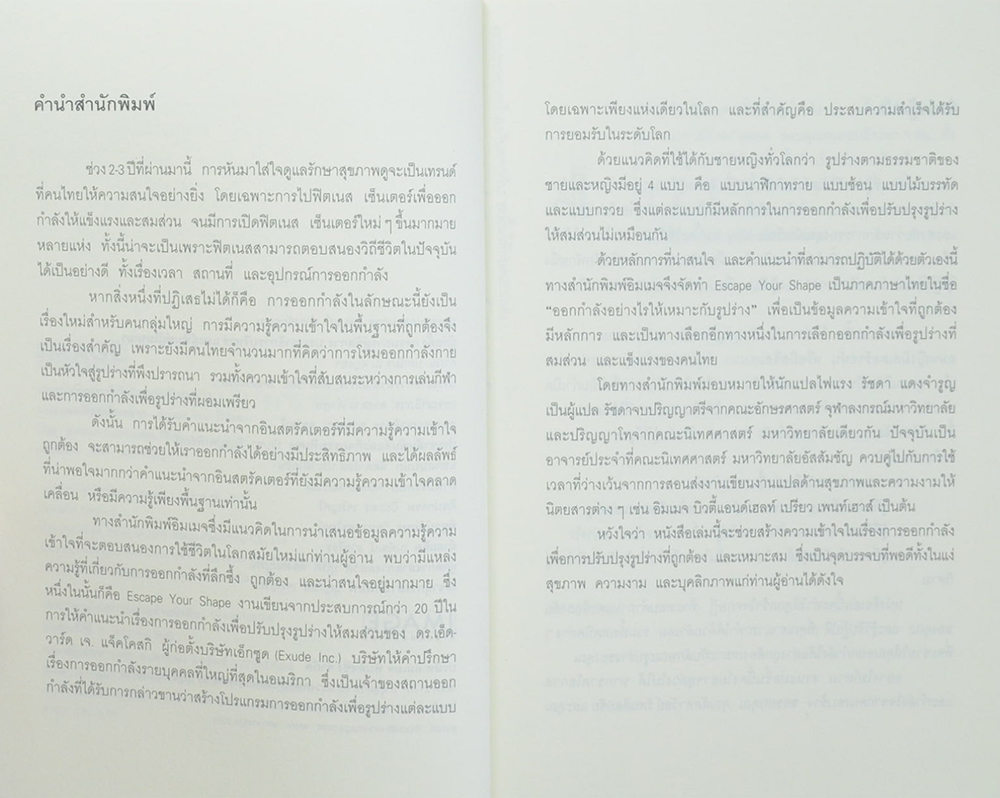 คำนำสำนักพิมพ์
ช่วง 2-3 ปีที่ผ่านมานี้ การหันมาใส่ใจดูแลรักษาสุขภาพดูจะเป็นเทรนด์
ที่คนไทยให้ความสนใจอย่างยิ่ง โดยเฉพาะการไปฟิตเนส เซ็นเตอร์เพื่อออก
กำลังให้แข็งแรงและสมส่วน จนมีการเปิดฟิตเนส เซ็นเตอร์ใหม่ ๆ ขึ้นมากมาย
หลายแห่ง ทั้งนี้น่าจะเป็นเพราะฟิตเนสสามารถตอบสนองวิถีชีวิตในปัจจุบัน
ได้เป็นอย่างดี ทั้งเรื่องเวลา สถานที่ และอุปกรณ์การออกกำลัง
หากสิ่งหนึ่งที่ปฏิเสธไม่ได้ก็คือ การออกกำลังในลักษณะนี้ยังเป็น
เรื่องใหม่สำหรับคนกลุ่มใหญ่ การมีความรู้ความเข้าใจในพื้นฐานที่ถูกต้องจึง
เป็นเรื่องสำคัญ เพราะยังมีคนไทยจำนวนมากที่คิดว่าการโหมออกกำลังกาย
เป็นหัวใจสู่รูปร่างที่พึงปรารถนา รวมทั้งความเข้าใจที่สับสนระหว่างการเล่นกีฬา
และการออกกำลังเพื่อรูปร่างที่ผอมเพรียว
ดังนั้น การได้รับคำแนะนำจากอินสตรัคเตอร์ที่มีความรู้ความเข้าใจ
ถูกต้อง จะสามารถช่วยให้เราออกกำลังได้อย่างมีประสิทธิภาพ และได้ผลลัพธ์
ที่น่าพอใจมากกว่าคำแนะนำจากอินสตรัคเตอร์ที่ยังมีความรู้ความเข้าใจคลาด
เคลื่อน หรือมีความรู้เพียงพื้นฐานเท่านั้น
ทางสำนักพิมพ์อิมเมจซึ่งมีแนวคิดในการนำเสนอข้อมูลความรู้ความ
เข้าใจที่จะตอบสนองการใช้ชีวิตในโลกสมัยใหม่แก่ท่านผู้อ่าน พบว่ามีแหล่ง
ความรู้ที่เกี่ยวกับการออกกำลังที่ลึกซึ้ง ถูกต้อง และน่าสนใจอยู่มากมาย ซึ่ง
หนึ่งในนั้นก็คือ Escape Your Shape งานเขียนจากประสบการณ์กว่า 20 ปีใน
การให้คำแนะนำเรื่องการออกกำลังเพื่อปรับปรุงรูปร่างให้สมส่วนของ ดร.เอ็ด-
วาร์ด เจ. แจ็คโคสกิ ผู้ก่อตั้งบริษัทเอ็กซูด (Exude Inc.) บริษัทให้คำปรึกษา
เรื่องการออกกำลังรายบุคคลที่ใหญ่ที่สุดในอเมริกา ซึ่งเป็นเจ้าของสถานออก
กำลังที่ได้รับการกล่าวขานว่าสร้างโปรแกรมการออกกำลังเพื่อรูปร่างแต่ละแบบ
โดยเฉพาะเพียงแห่งเดียวในโลก และที่สำคัญคือ ประสบความสำเร็จได้รับ
การยอมรับในระดับโลก
ด้วยแนวคิดที่ใช้ได้กับชายหญิงทั่วโลกว่า รูปร่างตามธรรมชาติของ
ชายและหญิงมีอยู่ 4 แบบ คือ แบบนาฬิกาทราย แบบช้อน แบบไม้บรรทัด
และแบบกรวย ซึ่งแต่ละแบบก็มีหลักการในการออกกำลังเพื่อปรับปรุงรูปร่าง
ให้สมส่วนไม่เหมือนกัน
ด้วยหลักการที่น่าสนใจ และคำแนะนำที่สามารถปฏิบัติได้ด้วยตัวเองนี้
ทางสำนักพิมพ์อิมเมจจึงจัดทำ Escape Your Shape เป็นภาคภาษาไทยในชื่อ
“ออกกำลังอย่างไรให้เหมาะกับรูปร่าง” เพื่อเป็นข้อมูลความเข้าใจที่ถูกต้อง
มีหลักการ และเป็นทางเลือกอีกทางหนึ่งในการเลือกออกกำลังเพื่อรูปร่างที่
สมส่วน และแข็งแรงของคนไทย
โดยทางสำนักพิมพ์มอบหมายให้นักแปลไฟแรง รัชดา แดงจำรูญ
เป็นผู้แปล รัชดาจบปริญญาตรีจากคณะอักษรศาสตร์ จุฬาลงกรณ์มหาวิทยาลัย
และปริญญาโทจากคณะนิเทศศาสตร์ มหาวิทยาลัยเดียวกัน ปัจจุบันเป็น
อาจารย์ประจำที่คณะนิเทศศาสตร์ มหาวิทยาลัยอัสสัมชัญ ควบคู่ไปกับการใช้
เวลาที่ว่างเว้นจากการสอนส่งงานเขียนงานแปลด้านสุขภาพและความงามให้
นิตยสารต่าง ๆ เช่น อิมเมจ บิวตี้แอนด์เฮลท์ เปรียว เพนท์เฮาส์ เป็นต้น
หวังใจว่า หนังสือเล่มนี้จะช่วยสร้างความเข้าใจในเรื่องการออกกำลัง
เพื่อการปรับปรุงรูปร่างที่ถูกต้อง และเหมาะสม ซึ่งเป็นจุดบรรจบที่พอดีทั้งในแง่
สุขภาพ ความงาม และบุคลิกภาพแก่ท่านผู้อ่านได้ดังใจ